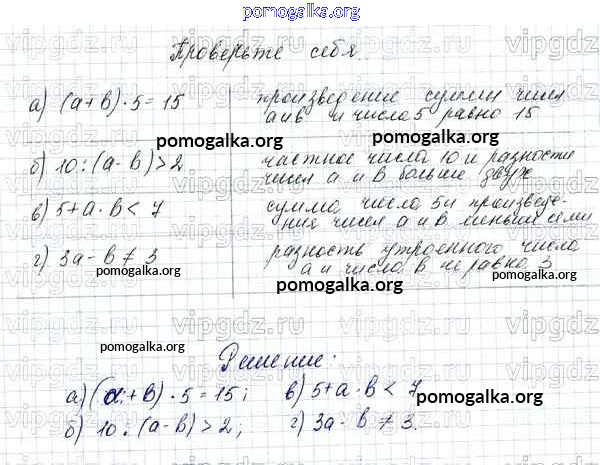 pomogalka.org
Проверьте себя.
а) (а+в)·5=15 произведение суммы чисел
а и в и числа 5 равно 15
pomogalka.org pomogalka.org
б) 10:(а-в)>2 частное числа 10 и разности
чисел а и в больше двух
pomogalka.org
в) 5+а·в<7 сумма числа 5 и произведе-
ние чисел а и в меньше семи
г) 3а-в≠3 разность утроенного числа
а и числа в не равно 3
pomogalka.org pomogalka.org
pomogalka.org
Решение:
а) (а+в)·5=15; в) 5+а·в<7
pomogalka.org
б) 10:(а-в)>2; г) 3а-в≠3.
pomogalka.org
vipgdz.ru